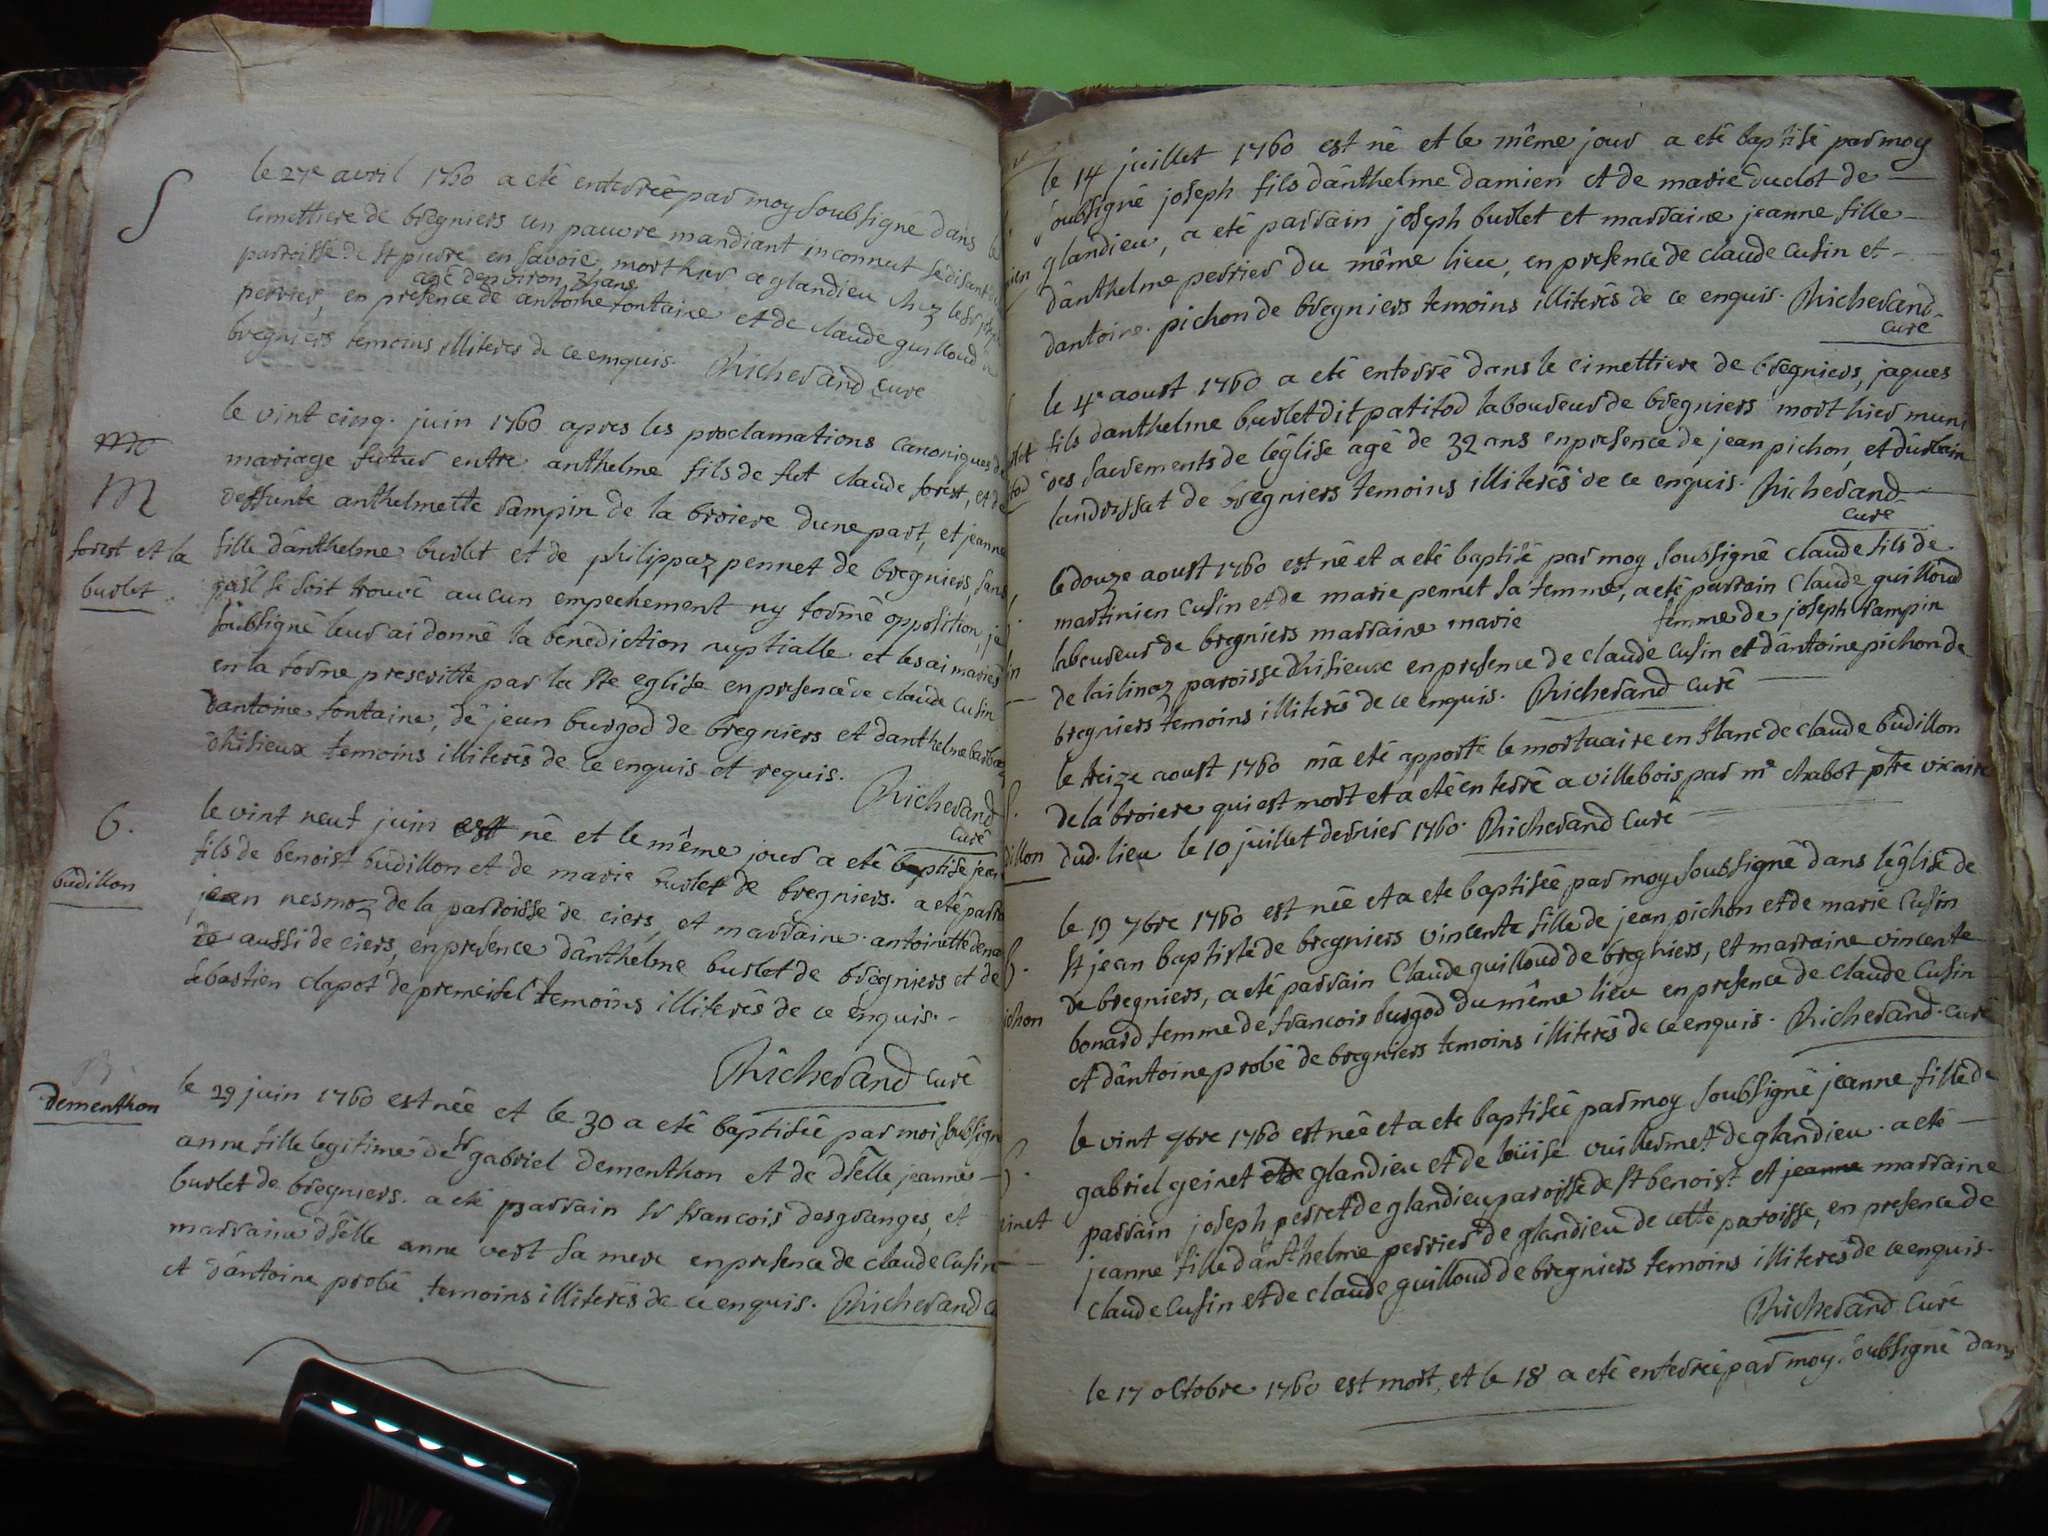 S
le 27e avril 1760 a eté enterrée par moy soubsigné dans le
cimettiere de bregniers un pauvre mandiant inconnut se disant de
parroisse de st pierre en savoie, mort hier a glandieu chez le sr joseph
agé denviron 3 ans
perrier, en presence de antoine fontaine et de claude guilloud de
bregniers temoins illiterés de ce enquis. Richerand curé
M
forest et la
burlet
le vint cinq. juin 1760 apres les proclamations canoniques de
mariage futur entre anthelme fils de fut claude forest, et de
deffunte anthelmette rampin de la broiere dune part, et jeanne
fille dânthelme burlet et de philippaz pennet de bregniers, sans
quil se soit trouvé aucun empechement ny formé opposition, je
soubsigné leur ai donné la benediction nuptialle et les ai mariés
en la forme prescritte par la ste eglise en presence de claude cusin
dantoine fontaine, de jean burgod de bregniers et danthelme barbaz
dhisieux temoins illiterés de ce enquis et requis.
Richerand
curé
6.
budillon
le vint neuf juin est né et le même jour a eté baptisé jean
fils de benoist budillon et de marie burlet de bregniers. a eté parrain
jean nesmoz de la parroisse de ciers, et marraine antoinette
de aussi de ciers, en presence dânthelme burlet de bregniers et de
sebastien clapot de premeisel temoins illiterés de ce enquis.
Richerand curé
B
dementhon
le 29 juin 1760 est née et le 30 a eté baptisée par moi soubsigné
anne fille legitime de sr gabriel dementhon et de dselle jeanne
burlet de bregniers. a eté parrain sr francois desgranges, et
marraine dselle anne vert sa mere en presence de claude cusin
et dântoine probé temoins illiterés de ce enquis. Richerand
le 14 juillet 1760 est né et le même jour a eté baptisé par moy
soubsigné joseph fils dânthelme damien et de marie duclot de
glandieu, a eté parrain joseph burlet et marraine jeanne fille
dânthelme perrier du même lieu, en presence de claude cusin et
dantoine pichon de bregniers temoins illiterés de ce enquis. Richerand
curé
le 4e aoust 1760 a eté enterré dans le cimettiere de bregniers, jaques
fils danthelme burlet dit patitod laboureur de bregniers mort hier muni
des sacrements de léglise agé de 32 ans en presence de jean pichon, et
landrissat de bregniers temoins illiterés de ce enquis. Richerand
curé
le douze aoust 1760 est né et a eté baptisé par moy soubsigné claude fils de
martinien cusin et de marie pennet sa femme, a eté parrain claude guilloud
laboureur de bregniers marraine marie femme de joseph rampin
de lailinaz paroisse dhisieux en presence de claude cusin et dântoine pichon de
bregniers temoins illiterés de ce enquis. Richerand curé
dillon
le treize aoust 1760 mâ eté apporté le mortuaire en blanc de claude budillon
de la broiere qui est mort et a eté enterré a villebois par mr chabot ptre vicaire
dud. lieu le 10 juillet dernier 1760. Richerand curé
ichon
le 19 7bre 1760 est née et a eté baptisée par moy soubsigné dans léglise de
st jean baptiste de bregniers vincente fille de jean pichon et de marie cusin
de bregniers, a eté parrain claude guilloud de bregniers, et marraine vincente
bonard femme de francois burgod du même lieu en presence de claude cusin
et dântoine probé de bregniers temoins illiterés de ce enquis. Richerand. curé
einet
le vint 7bre 1760 est née et a eté baptisée par moy soubsigné jeanne fille de
gabriel geinet de glandieu et de loüise vuillermet de glandieu. a eté
parrain joseph perret de glandieu paroisse de st benoist et jeanne marraine
jeanne fille dânthelme perrier de glandieu de cette paroisse, en presence de
claude cusin et de claude guilloud de bregniers temoins illiterés de ce enquis.
Richerand curé
le 17 octobre 1760 est mort, et le 18 a eté enterrée par moy soubsigné dans